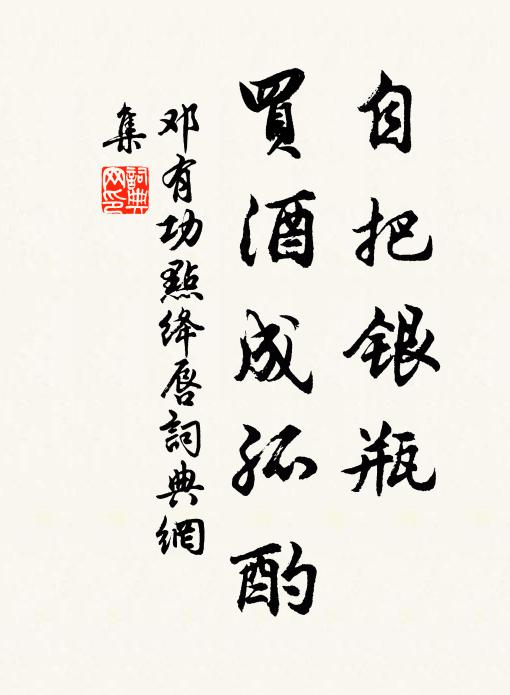 自把银瓶
買酒成孤酌
邓有功點绛唇詞典網
集
詞典网印